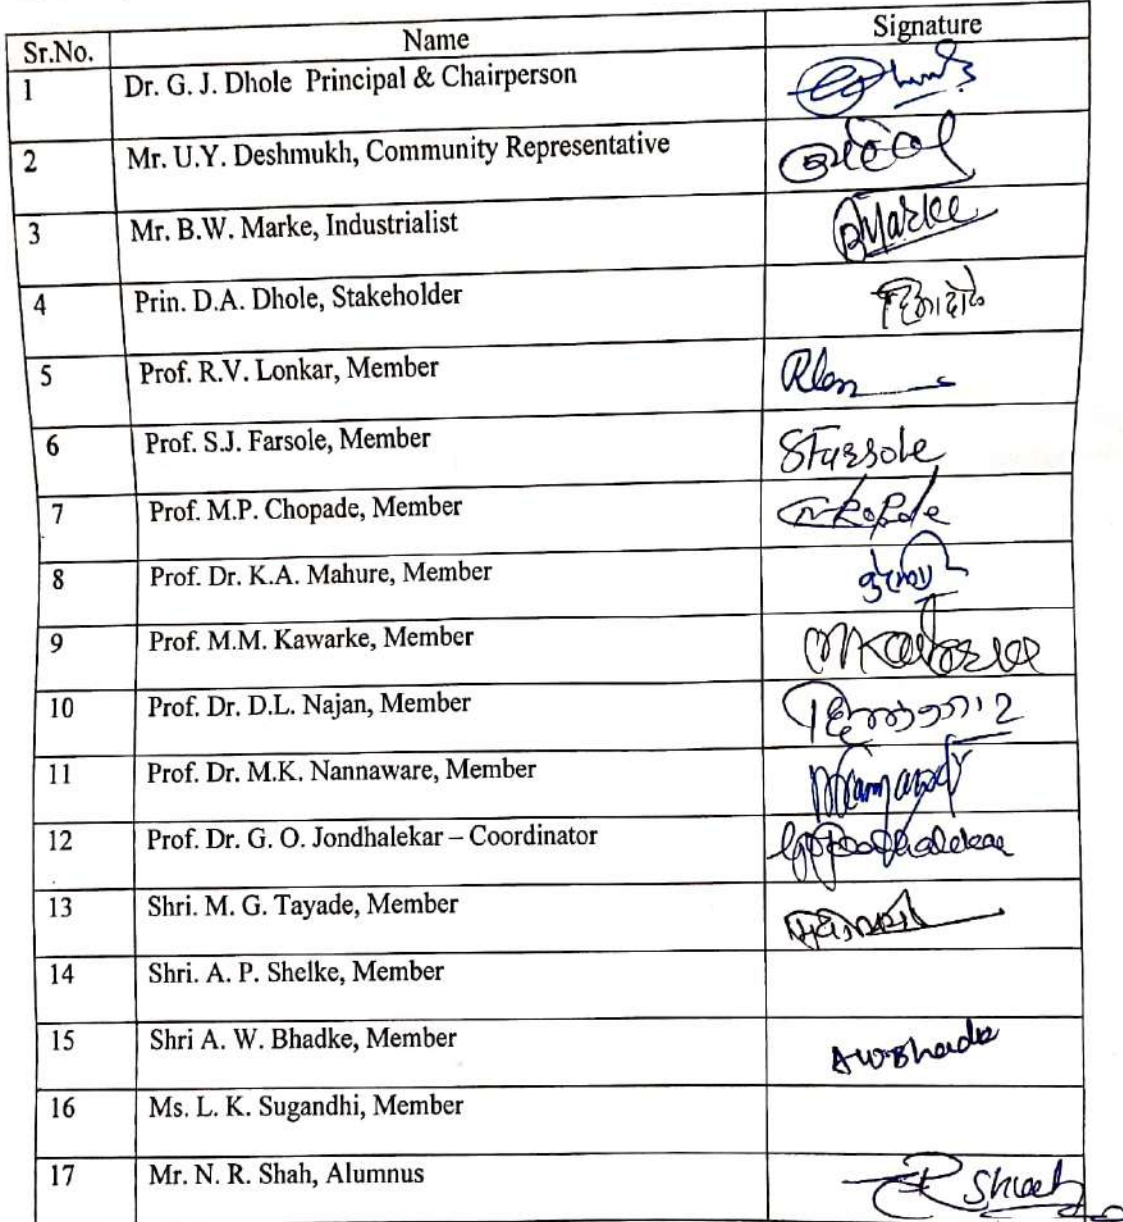 Sr.No. Name Signature
1 Dr. G. J. Dhole Principal & Chairperson
2 Mr. U.Y. Deshmukh, Community Representative
3 Mr. B.W. Marke, Industrialist BMarkee
4 Prin. D.A. Dhole, Stakeholder
5 Prof. R.V. Lonkar, Member Rlon
6 Prof. S.J. Farsole, Member SFarsole
7 Prof. M.P. Chopade, Member
8 Prof. Dr. K.A. Mahure, Member
9 Prof. M.M. Kawarke, Member
10 Prof. Dr. D.L. Najan, Member
11 Prof. Dr. M.K. Nannaware, Member
12 Prof. Dr. G. O. Jondhalekar – Coordinator
13 Shri. M. G. Tayade, Member
14 Shri. A. P. Shelke, Member
15 Shri A. W. Bhadke, Member AWBhade
16 Ms. L. K. Sugandhi, Member
17 Mr. N. R. Shah, Alumnus